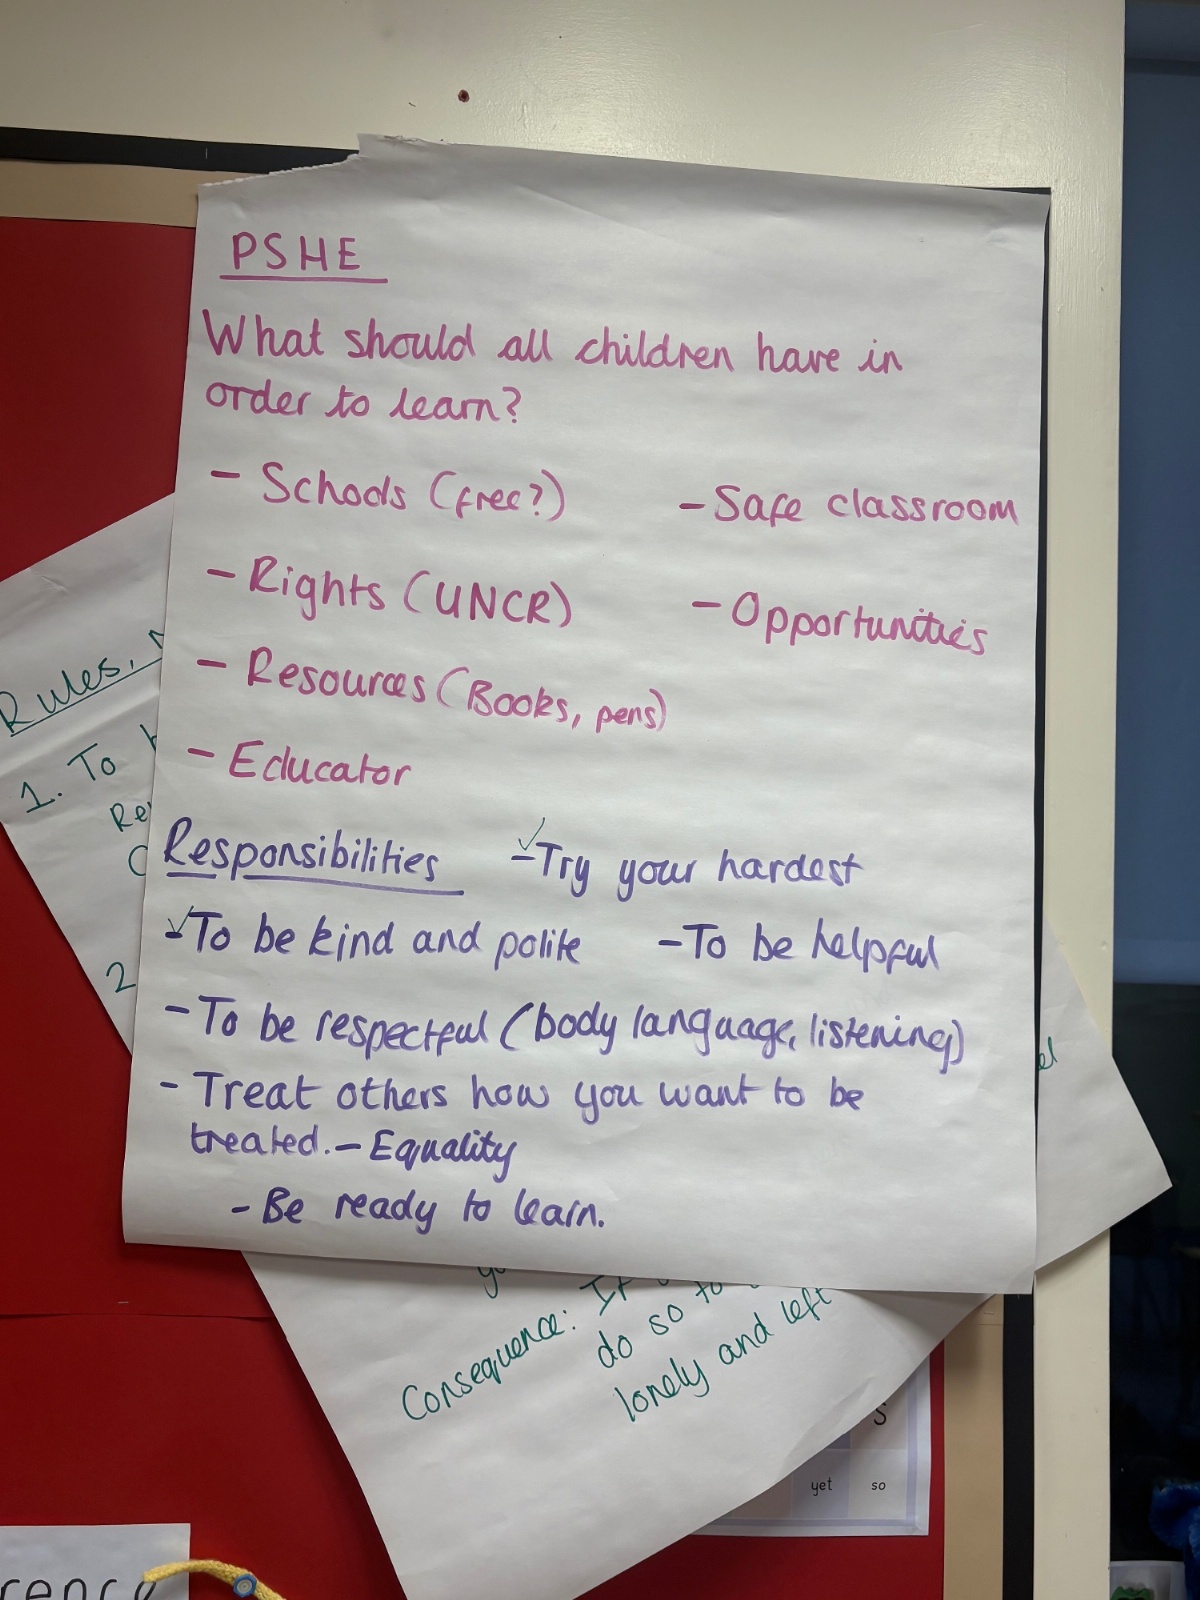 PSHE
What should all children have in
order to learn?
- Schools (free?)
- Safe classroom
- Rights (UNCR)
- Opportunities
- Resources (Books, pens)
- Educator
Responsibilities
- Try your hardest
- To be kind and polite
- To be helpful
- To be respectful (body language, listening)
- Treat others how you want to be
treated. - Equality
- Be ready to learn.
Rules,
1. To
2
Consequence: If
do so to
lonely and left
S
yet so